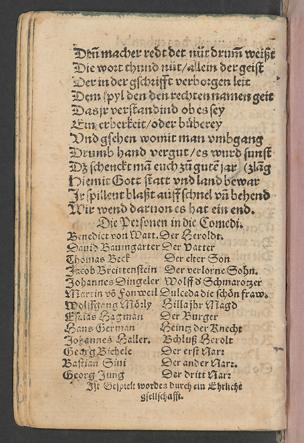 Deñ macher redt det nüt drumm weißt
Die wort thund nüt/allein der geist
Der in der gschrifft verborgen leit
Dem spyl den den rechten namen geit
Das jr verstandind ob es sey
Ein erberkeit/oder büberey
Und gsehen womit man vmbgang
Drumb hand vergut/es wurd sunst zlãg
Dz schenckt mã euch zũ gutẽ jar
Hiemit Gott statt vnd land bewar
Jr spillent blaßt auff schnel vñ behend
Wir wend daruon es hat ein end.
Die Personen in die Comedi.
Benedict von Watt. Der Heroldt.
Dauid Baumgarter Der Vatter
Thomas Beck Der elter Son
Jacob Breittenstein Der verlorne Sohn.
Johannes Dingeler Wolff d Schmarotzer
Martin võ Fonweil Dulceda die schön fraw.
Wolffgang Mörly Hillarj9 Magd
Esaias Hagman Der Burger
Hans German Heintz der Knecht
Johannes Haller. Bschluß Herolt
Georg Bichele Der erst Narr
Bastian Sini Der ander Narr.
Georg Jung Der dritt Narr
Jst Gespielt worden durch ein Ehrliche
gsellschafft.